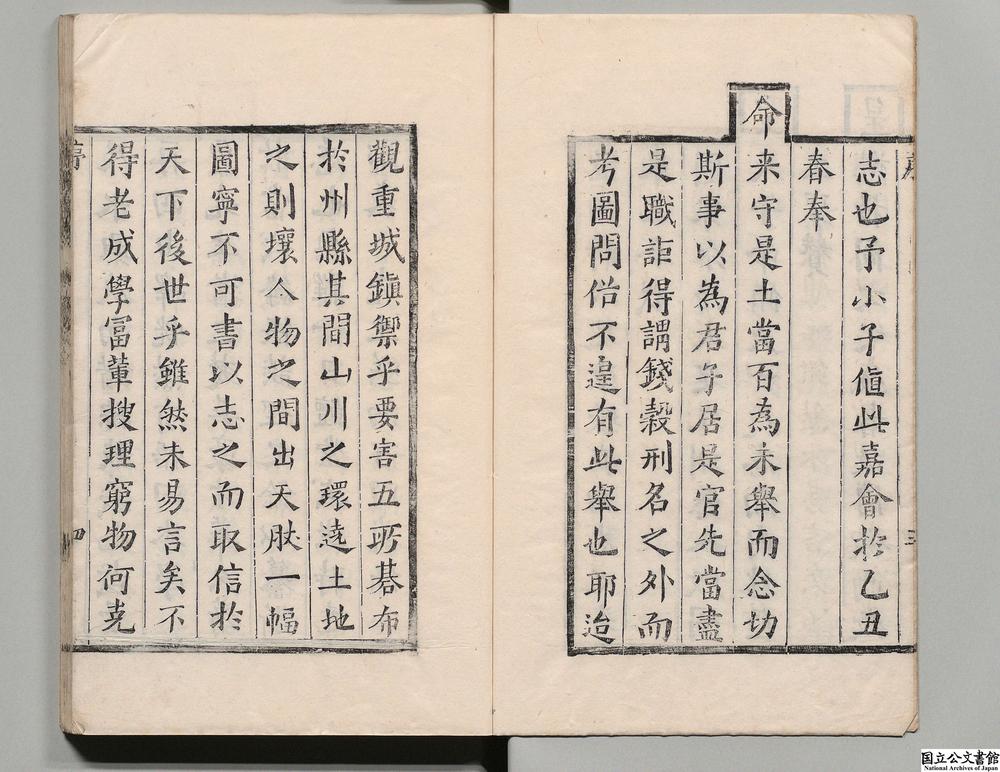 志也予小子值此嘉會於乙丑
春奉
命来守是土當百為未舉而念切
斯事以為君子居是官先當盡
是職詎得謂錢穀刑名之外而
考圖問俗不遑有此舉也耶迨
觀重城鎮禦乎要害五所碁布
於州縣其間山川之環遶土地
之則壤人物之間出天然一幅
圖寧不可書以志之而取信於
天下後世乎雖然未易言矣不
得老成學冨輩搜理窮物何克
序
四
国立公文書館
National Archives of Japan